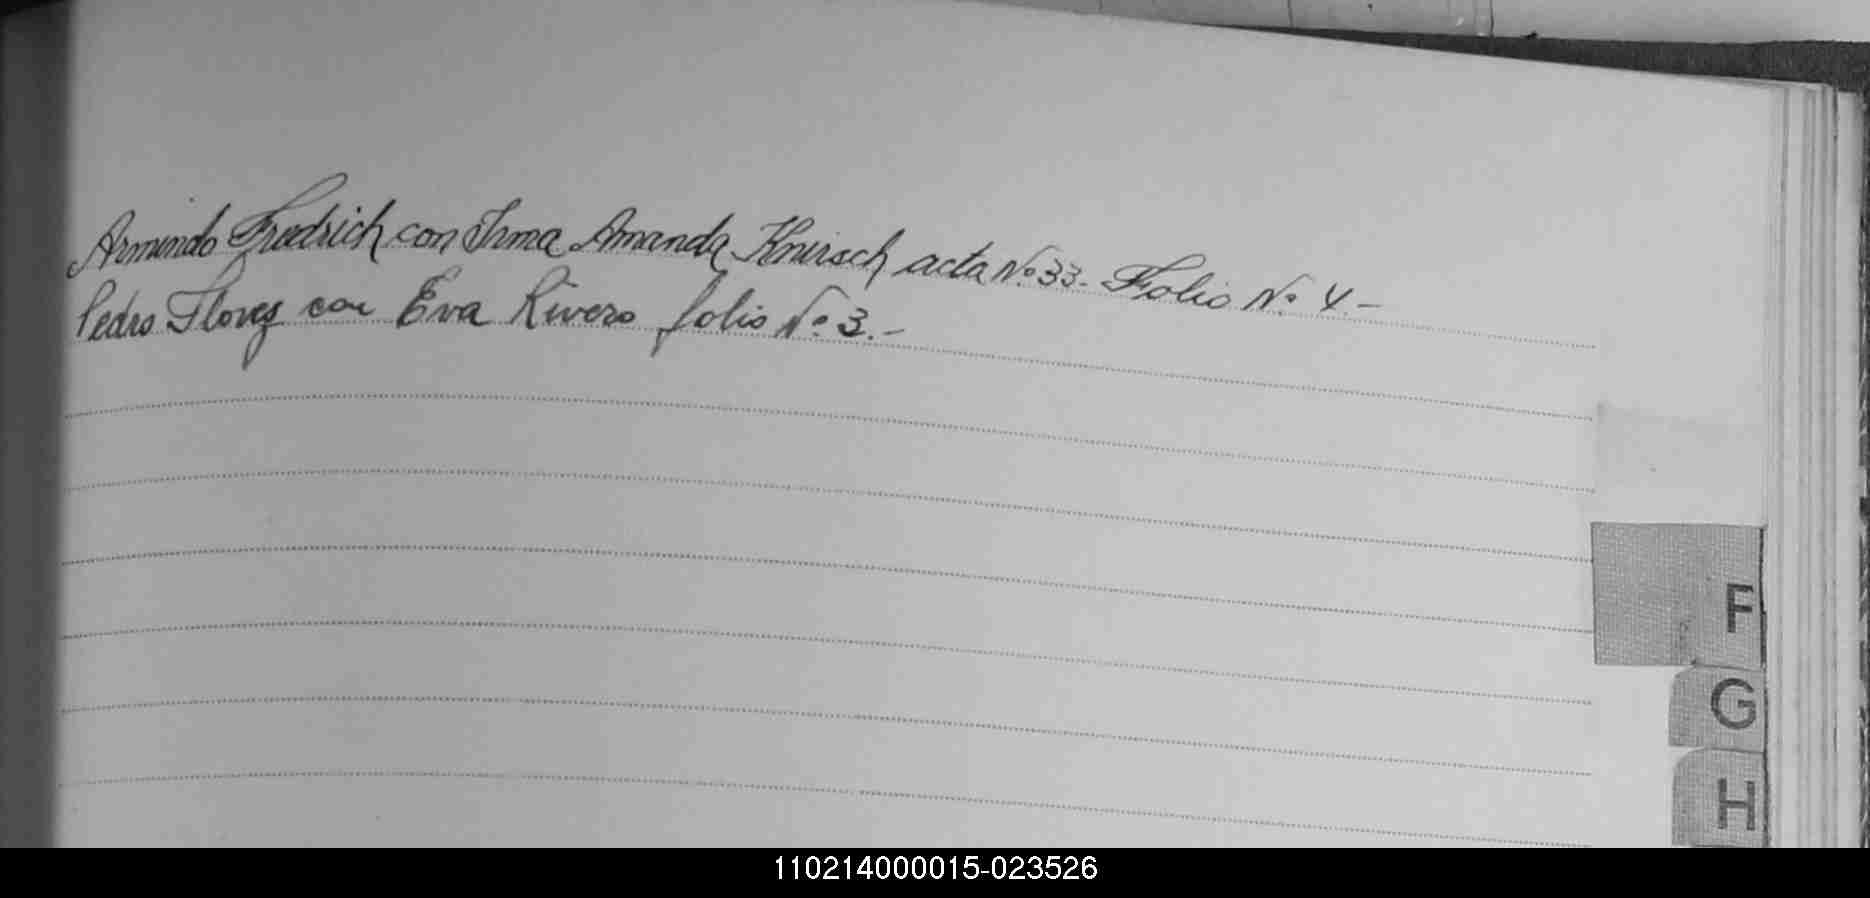 Armindo Fredrich con Irma Amanda Knirsch acta Nº 33.- Folio Nº 4.-
Pedro Flores con Eva Rivero folio Nº 3.-
F
G
H
110214000015-023526